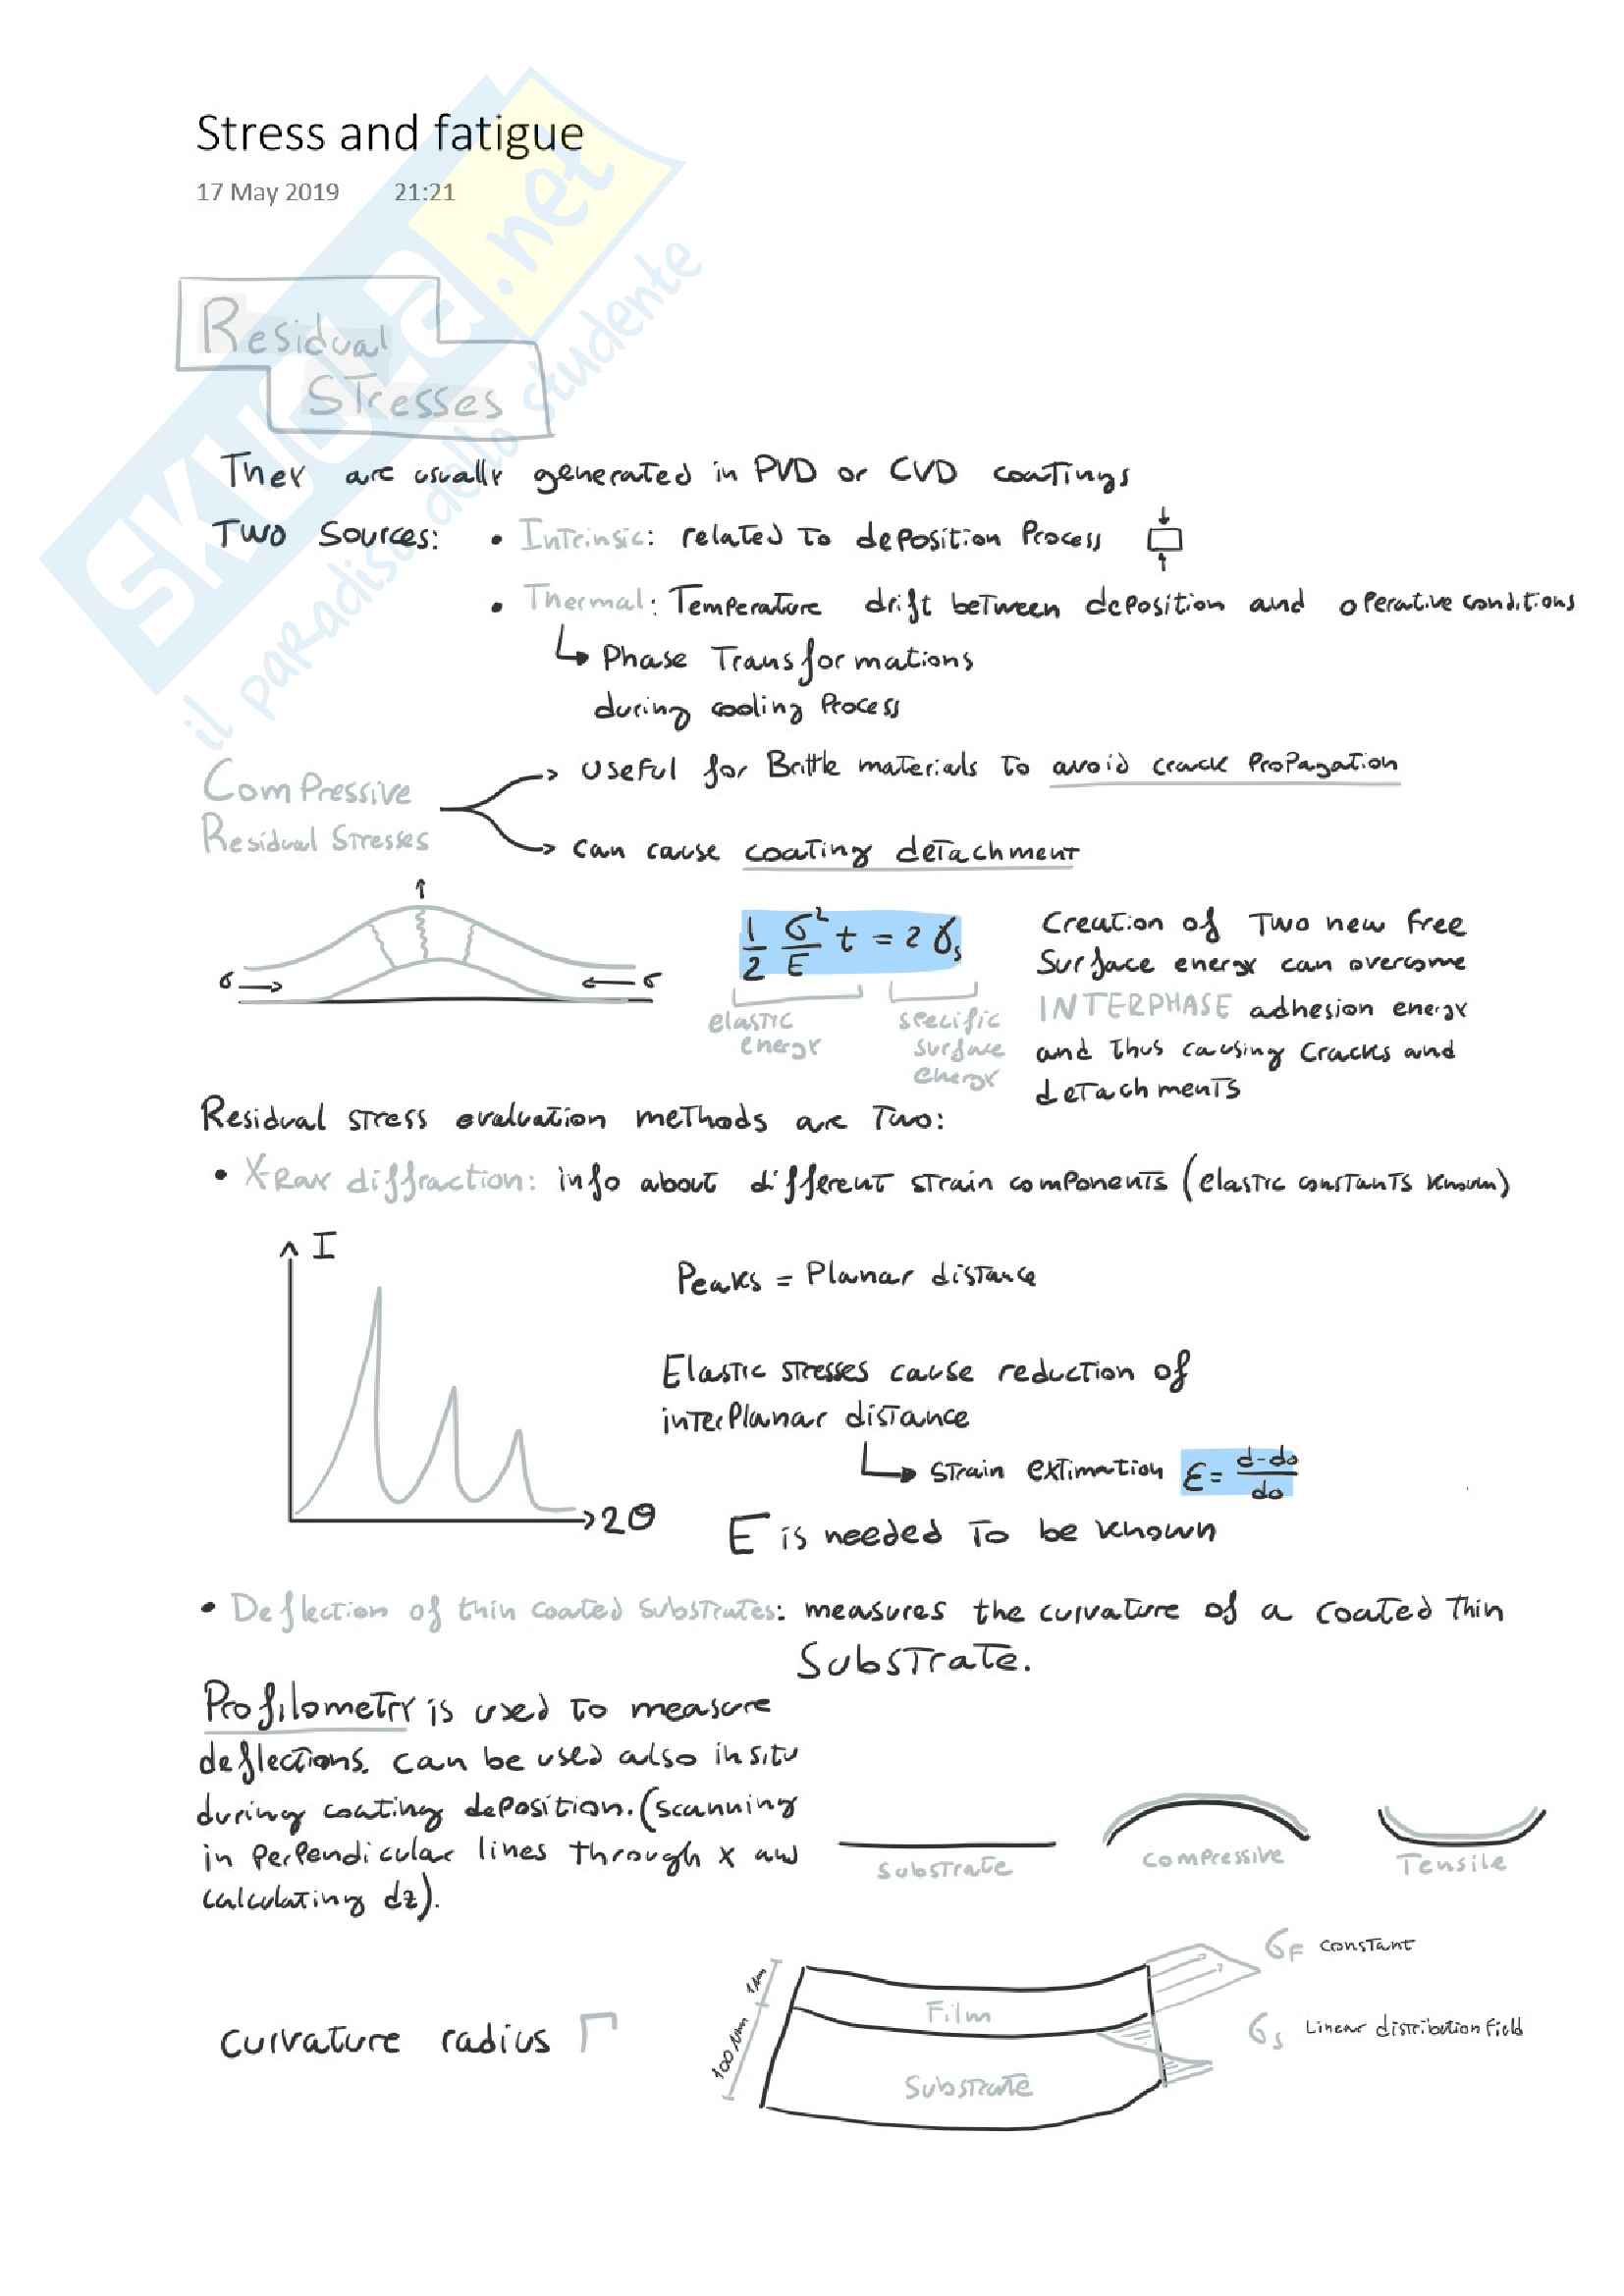 Stress and fatigue
17 May 2019 21:21
SKUOLA.net
il paradiso dello studente
Residual
Stresses
They are usually generated in PVD or CVD coatings
Two Sources: • Intrinsic: related to deposition Process
• Thermal: Temperature drift between deposition and operative conditions
↳ Phase Transformations
during cooling Process
Compressive
Residual Stresses
useful for Brittle materials to avoid crack Propagation
can cause coating detachment
σ → ← σ
1/2 σ²/E t = 2 γs
elastic
energy
specific
surface
energy
Creation of Two new free
Surface energy can overcome
INTERPHASE adhesion energy
and thus causing cracks and
detachments
Residual stress evaluation methods are Two:
• X-Ray diffraction: info about different strain components (elastic constants known)
I
2θ
Peaks = Planar distance
Elastic stresses cause reduction of
interplanar distance
↳ strain extimation ε = d-do/do
E is needed to be known
• Deflection of thin coated substrates: measures the curvature of a coated thin
Substrate.
Profilometry is used to measure
deflections. can be used also in situ
during coating deposition. (scanning
in perpendicular lines through x and
calculating dz).
Substrate
compressive
Tensile
curvature radius r
1μm
100 μm
Film
Substrate
σF constant
σs Linear distribution field